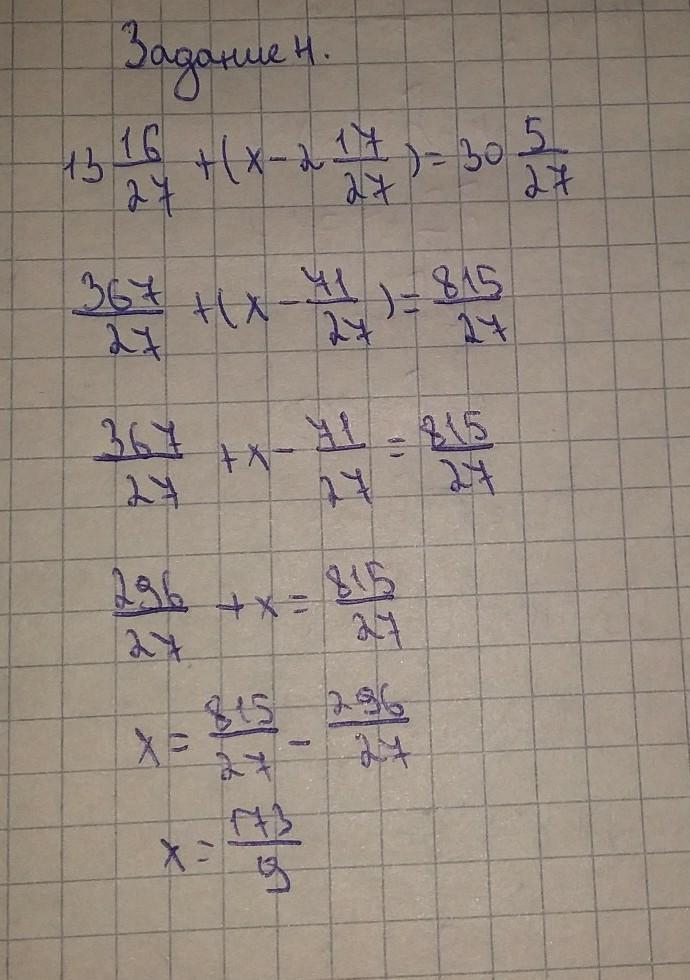 Задание 4.
13 16/27 + (x - 2 17/27) = 30 5/27
367/27 + (x - 71/27) = 815/27
367/27 + x - 71/27 = 815/27
296/27 + x = 815/27
x = 815/27 - 296/27
x = 173/9